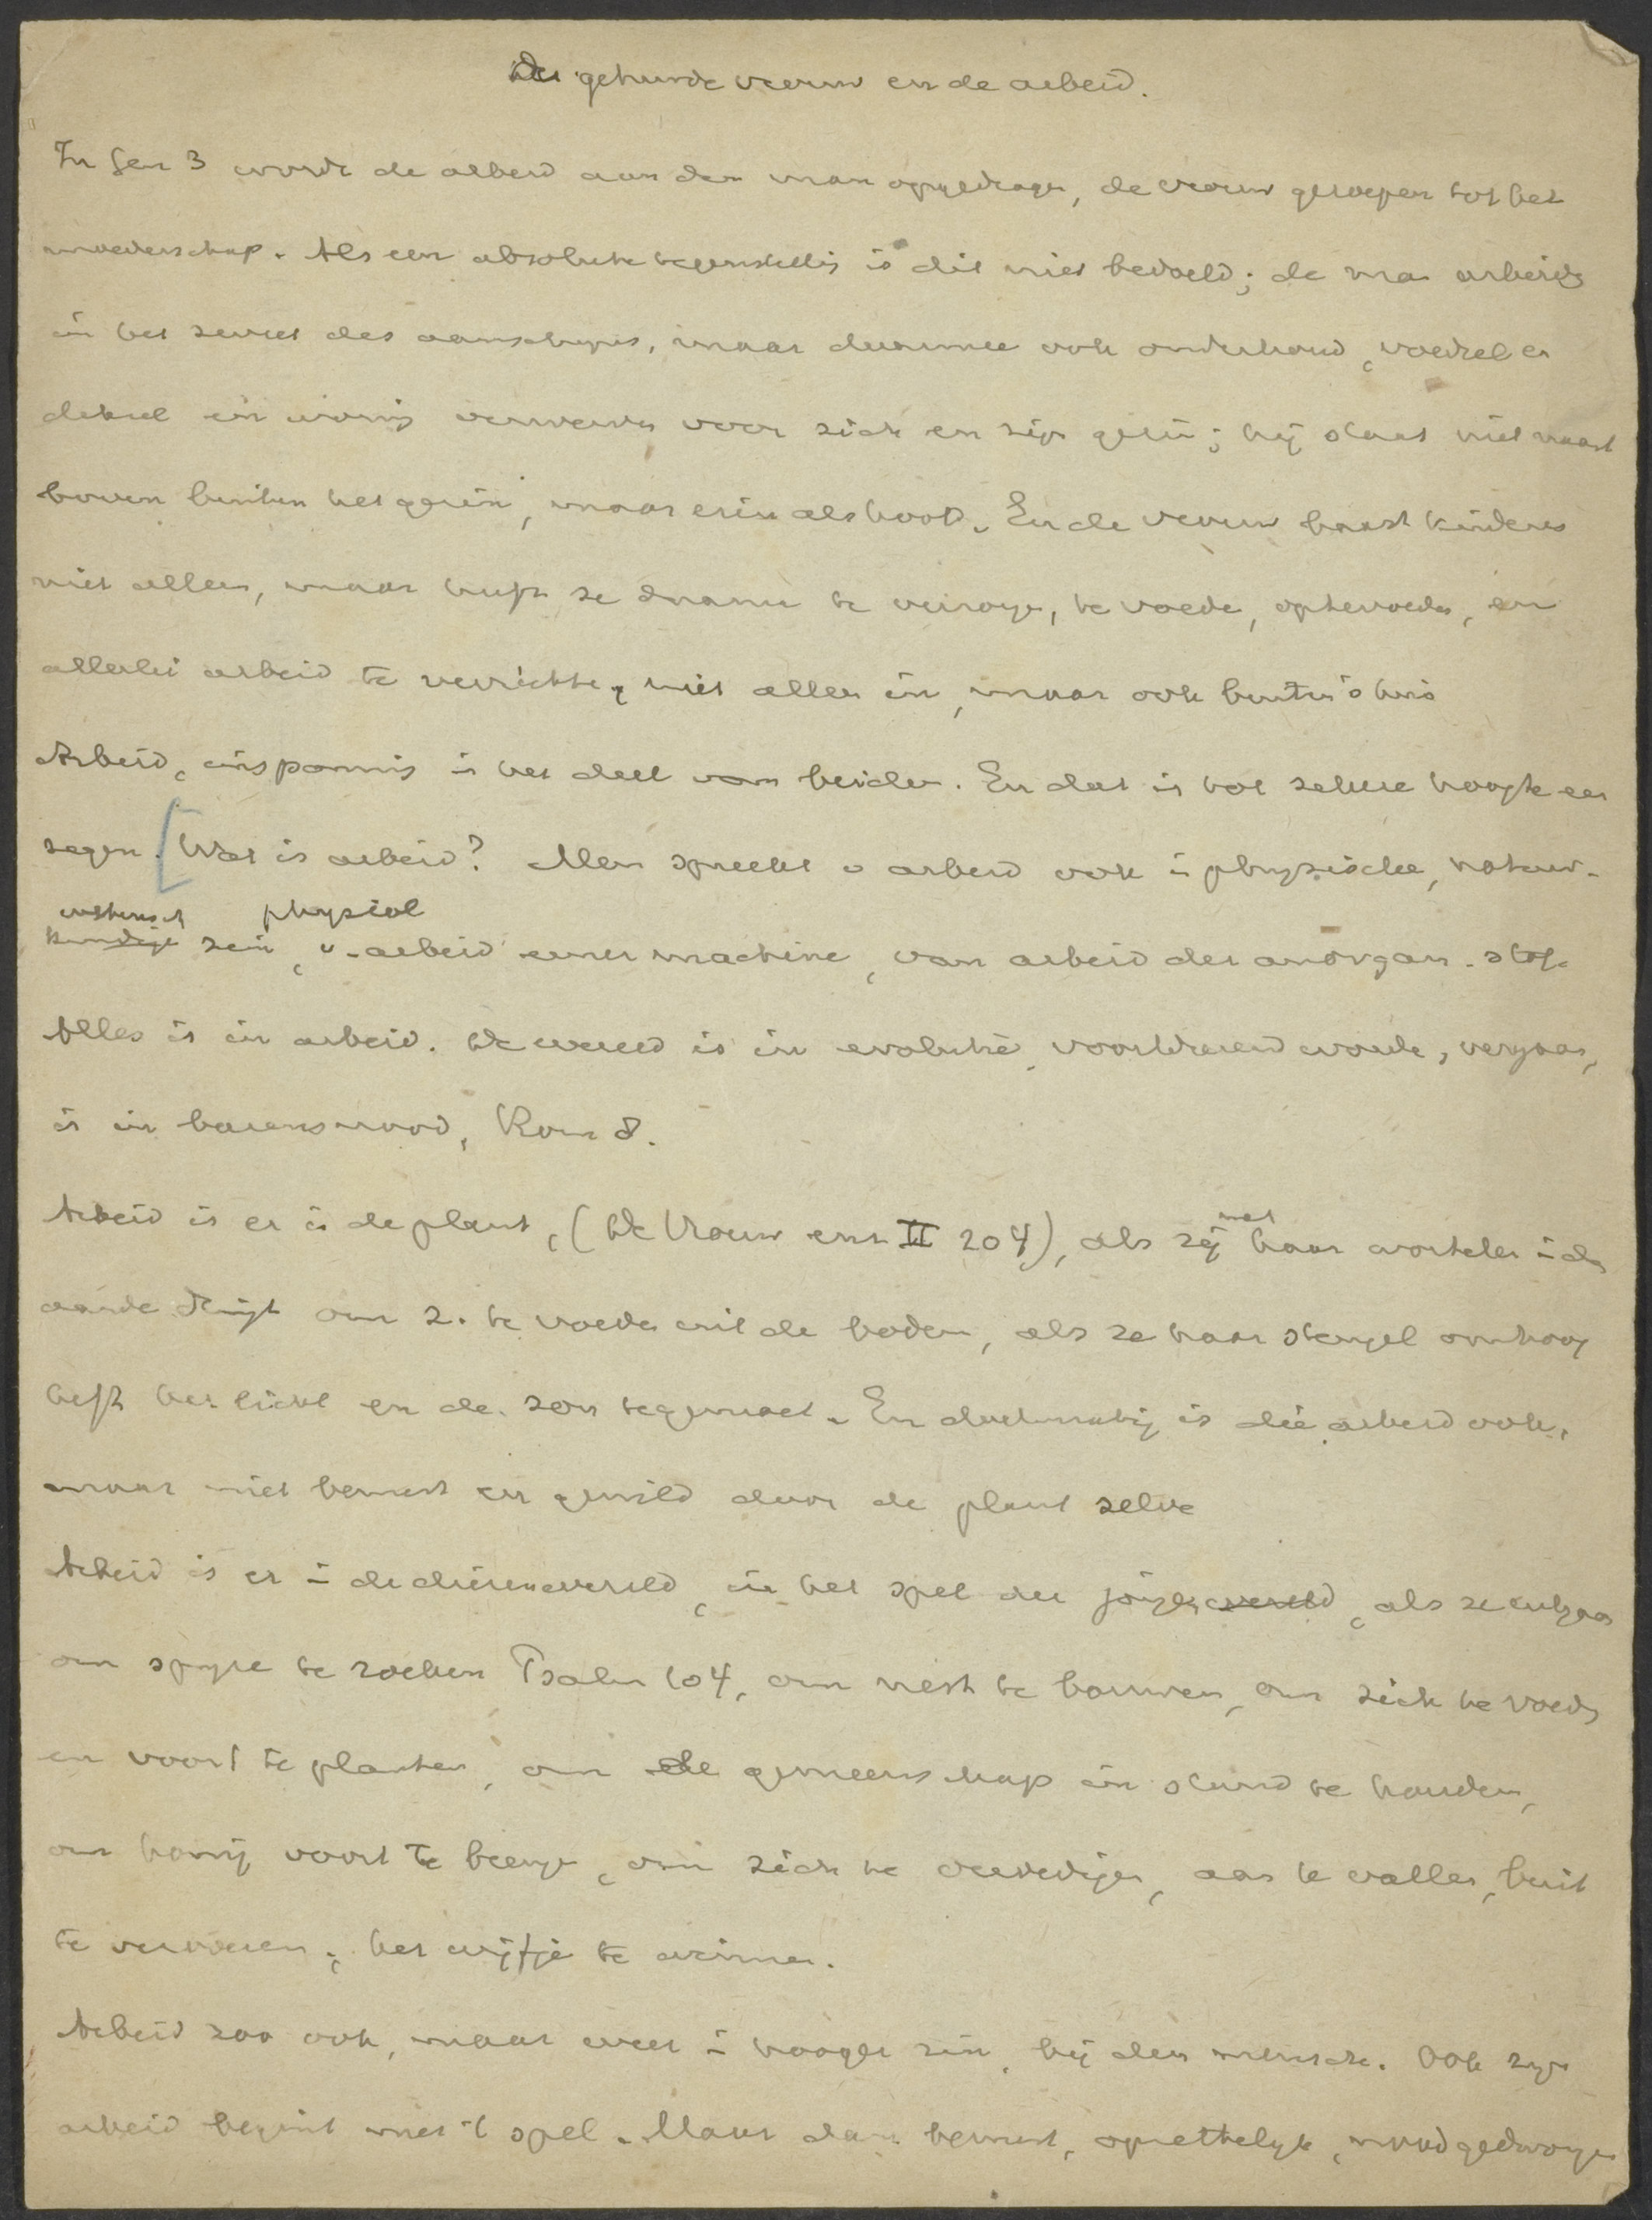 De gehuwde vrouw en de arbeid.
In Gen 3 wordt de arbeid aan den man opgedragen, de vrouw geroepen tot het
moederschap. Als een absolute tegenstellig is dit niet bedoeld; de man arbeidt
in het zweet des aanschyns, maar daarmee ook onderhoud, voedsel en
deksel en wonig verwerven voor zich en zijn gezin; hij staat niet naast
boven buiten het gezin, maar erin als hoofd. En de vrouw baart kinderen
niet alleen, maar heeft ze daarna te verzorgen, te voeden, optevoeden, en
allerlei arbeid te verrichten, niet alleen in, maar ook buiten 's huis
Arbeid, inspannig is het deel van beiden. En dat is tot zekere hoogte een
zegen. [Wat is arbeid? Men spreekt v arbeid ook in physische, natuur-
physiol
kundige zin, v. arbeid eener machine, van arbeid der anorgan. stof.
Alles is in arbeid. De wereld is in evolutie, voortdurend worden, vergaan,
is in barensnood, Rom 8.
Arbeid is er in de plant, (De Vrouw enz II 204), als zij met haar wortelen in de
aarde dringt om z. te voeden uit de bodem, als ze haar stengel omhoog
heft het licht en de zon tegemoet. En doelmatig is die arbeid ook,
maar niet bewust en gewild door de plant zelve
Arbeid is er in de dierenwereld, in het spel der jongen wereld, als ze uitgaan
om spyze te zoeken Psalm 104, om nest te bouwen, om zich te voeden
en voort te planten, om de gemeenschap in stand te houden,
om honig voort te brengen, om zich te verdedigen, aan te vallen, buit
te veroveren, het wijfje te winnen.
Arbeid zoo ook, maar weer in hooger zin, bij den mensch. Ook zijn
arbeid begint met 't spel. Maar dan bewust, opzettelyk, noodgedwongen